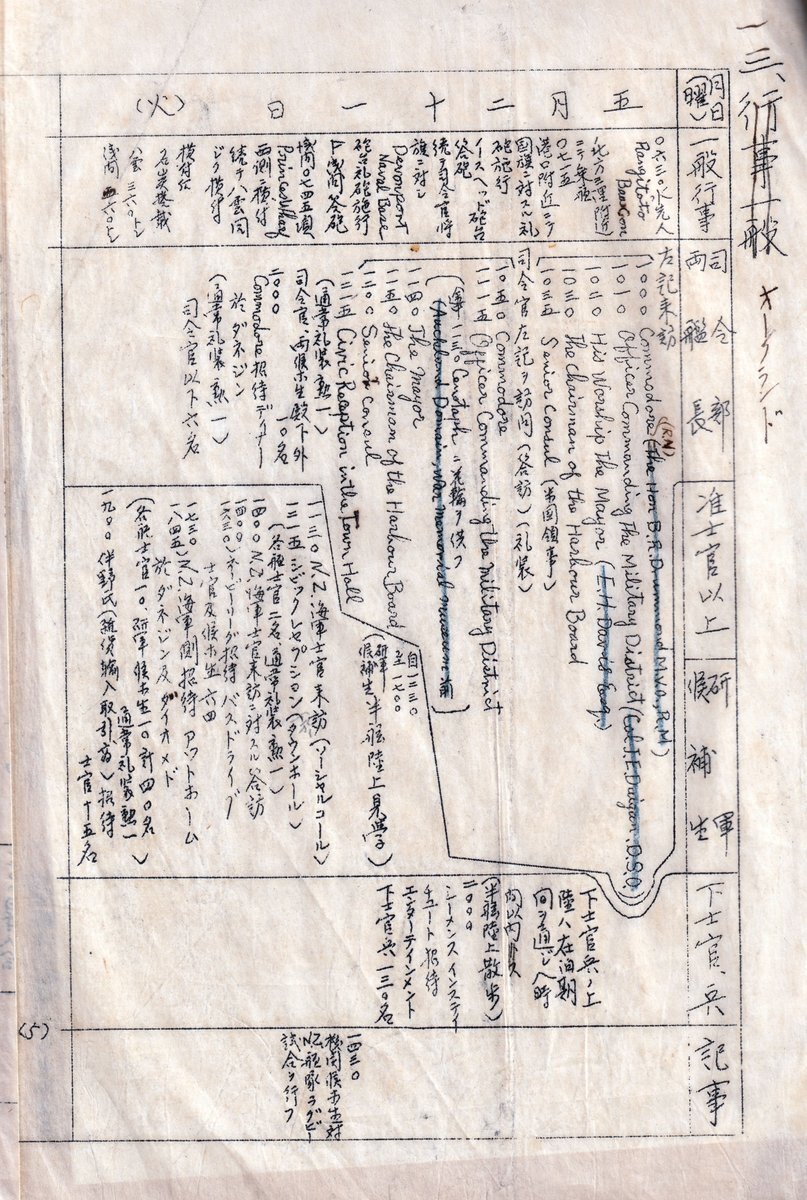 一三、行事一般 オークランド
月日(曜)
一般行事
司令部
両艦長
准士官以上
候補生
研軍
下士官、兵
記事
五月二十一日(火)
〇六三〇水先人
Rangitoto
Beacon
北方三浬附近
〇七一五
港口附近ニテ
国旗ニ対スル礼
砲施行
ノースヘッド砲台
答砲
続テ司令官将
旗ニ対シ
Devonport
Naval Base
砲台礼砲施行
浅間答砲
浅間〇七四五頃
Princes Wharf
西側ニ横付
続テ八雲同
ジク横付
横付后
石炭搭載
八雲 三六〇トン
浅間 五六〇トン
左記来訪
1000 Commodore (The Hon B.R. Drummond M.V.O., R.N) (RN)
1010 Officer Commanding The Military District (Col. J.F. Duigan. D.S.O.
1020 His Worship The Mayor (E.H. Davis Esq.,)
1030 The Chairman of the Harbour Board
1035 Senior Consul (米国領事)
司令官左記ヲ訪問(答訪)(礼装)
1050 Commodore
1115 Officer Commanding The Military District
1130 Cenotaph ニ花輪ヲ供フ
(Auckland Domain, War Memorial Museum 前)
1140 The Mayor
1150 The Chairman of the Harbour Board
1200 Senior Consul
1215 Civic Reception in the Town Hall
(通常礼装勲一)
司令官、両候補生殿下外
一〇名
二〇〇〇
Commodore 招待ディナー
於ダネジン
(通常礼装 勲一)
司令官以下六名
自一二三〇
至一七〇〇
候補生半舷陸上見学)
一一三〇 N.Z.海軍士官来訪(ソーシャルコール)
一二一五 シビックレセプション(タウンホール)
(各艦士官二名 通常礼装勲一)
一四〇〇 N.Z.海軍士官来訪ニ対スル答訪
一四〇〇
一六三〇)ネービーリーグ招待 バスドライブ
士官及候補生 六四
一七三〇
一八四五)N.Z.海軍側招待 アットホーム
於ダネジン及ダイオメド
(各艦士官一〇、研軍 候補生一〇 計四〇名
通常礼装勲一)
一九〇〇 伴野氏(雑貨輸入取引商)招待
士官十五名
下士官兵ノ上
陸ハ在泊期
間ヲ通ジ八時
間以内トス
(半舷陸上散歩)
二〇〇〇
シーメンスインスティ
チュート招待
エンターテインメント
下士官兵一三〇名
一四三〇
機関候補生対
N.Z.艦隊ラグビー
試合ヲ行フ
(5)